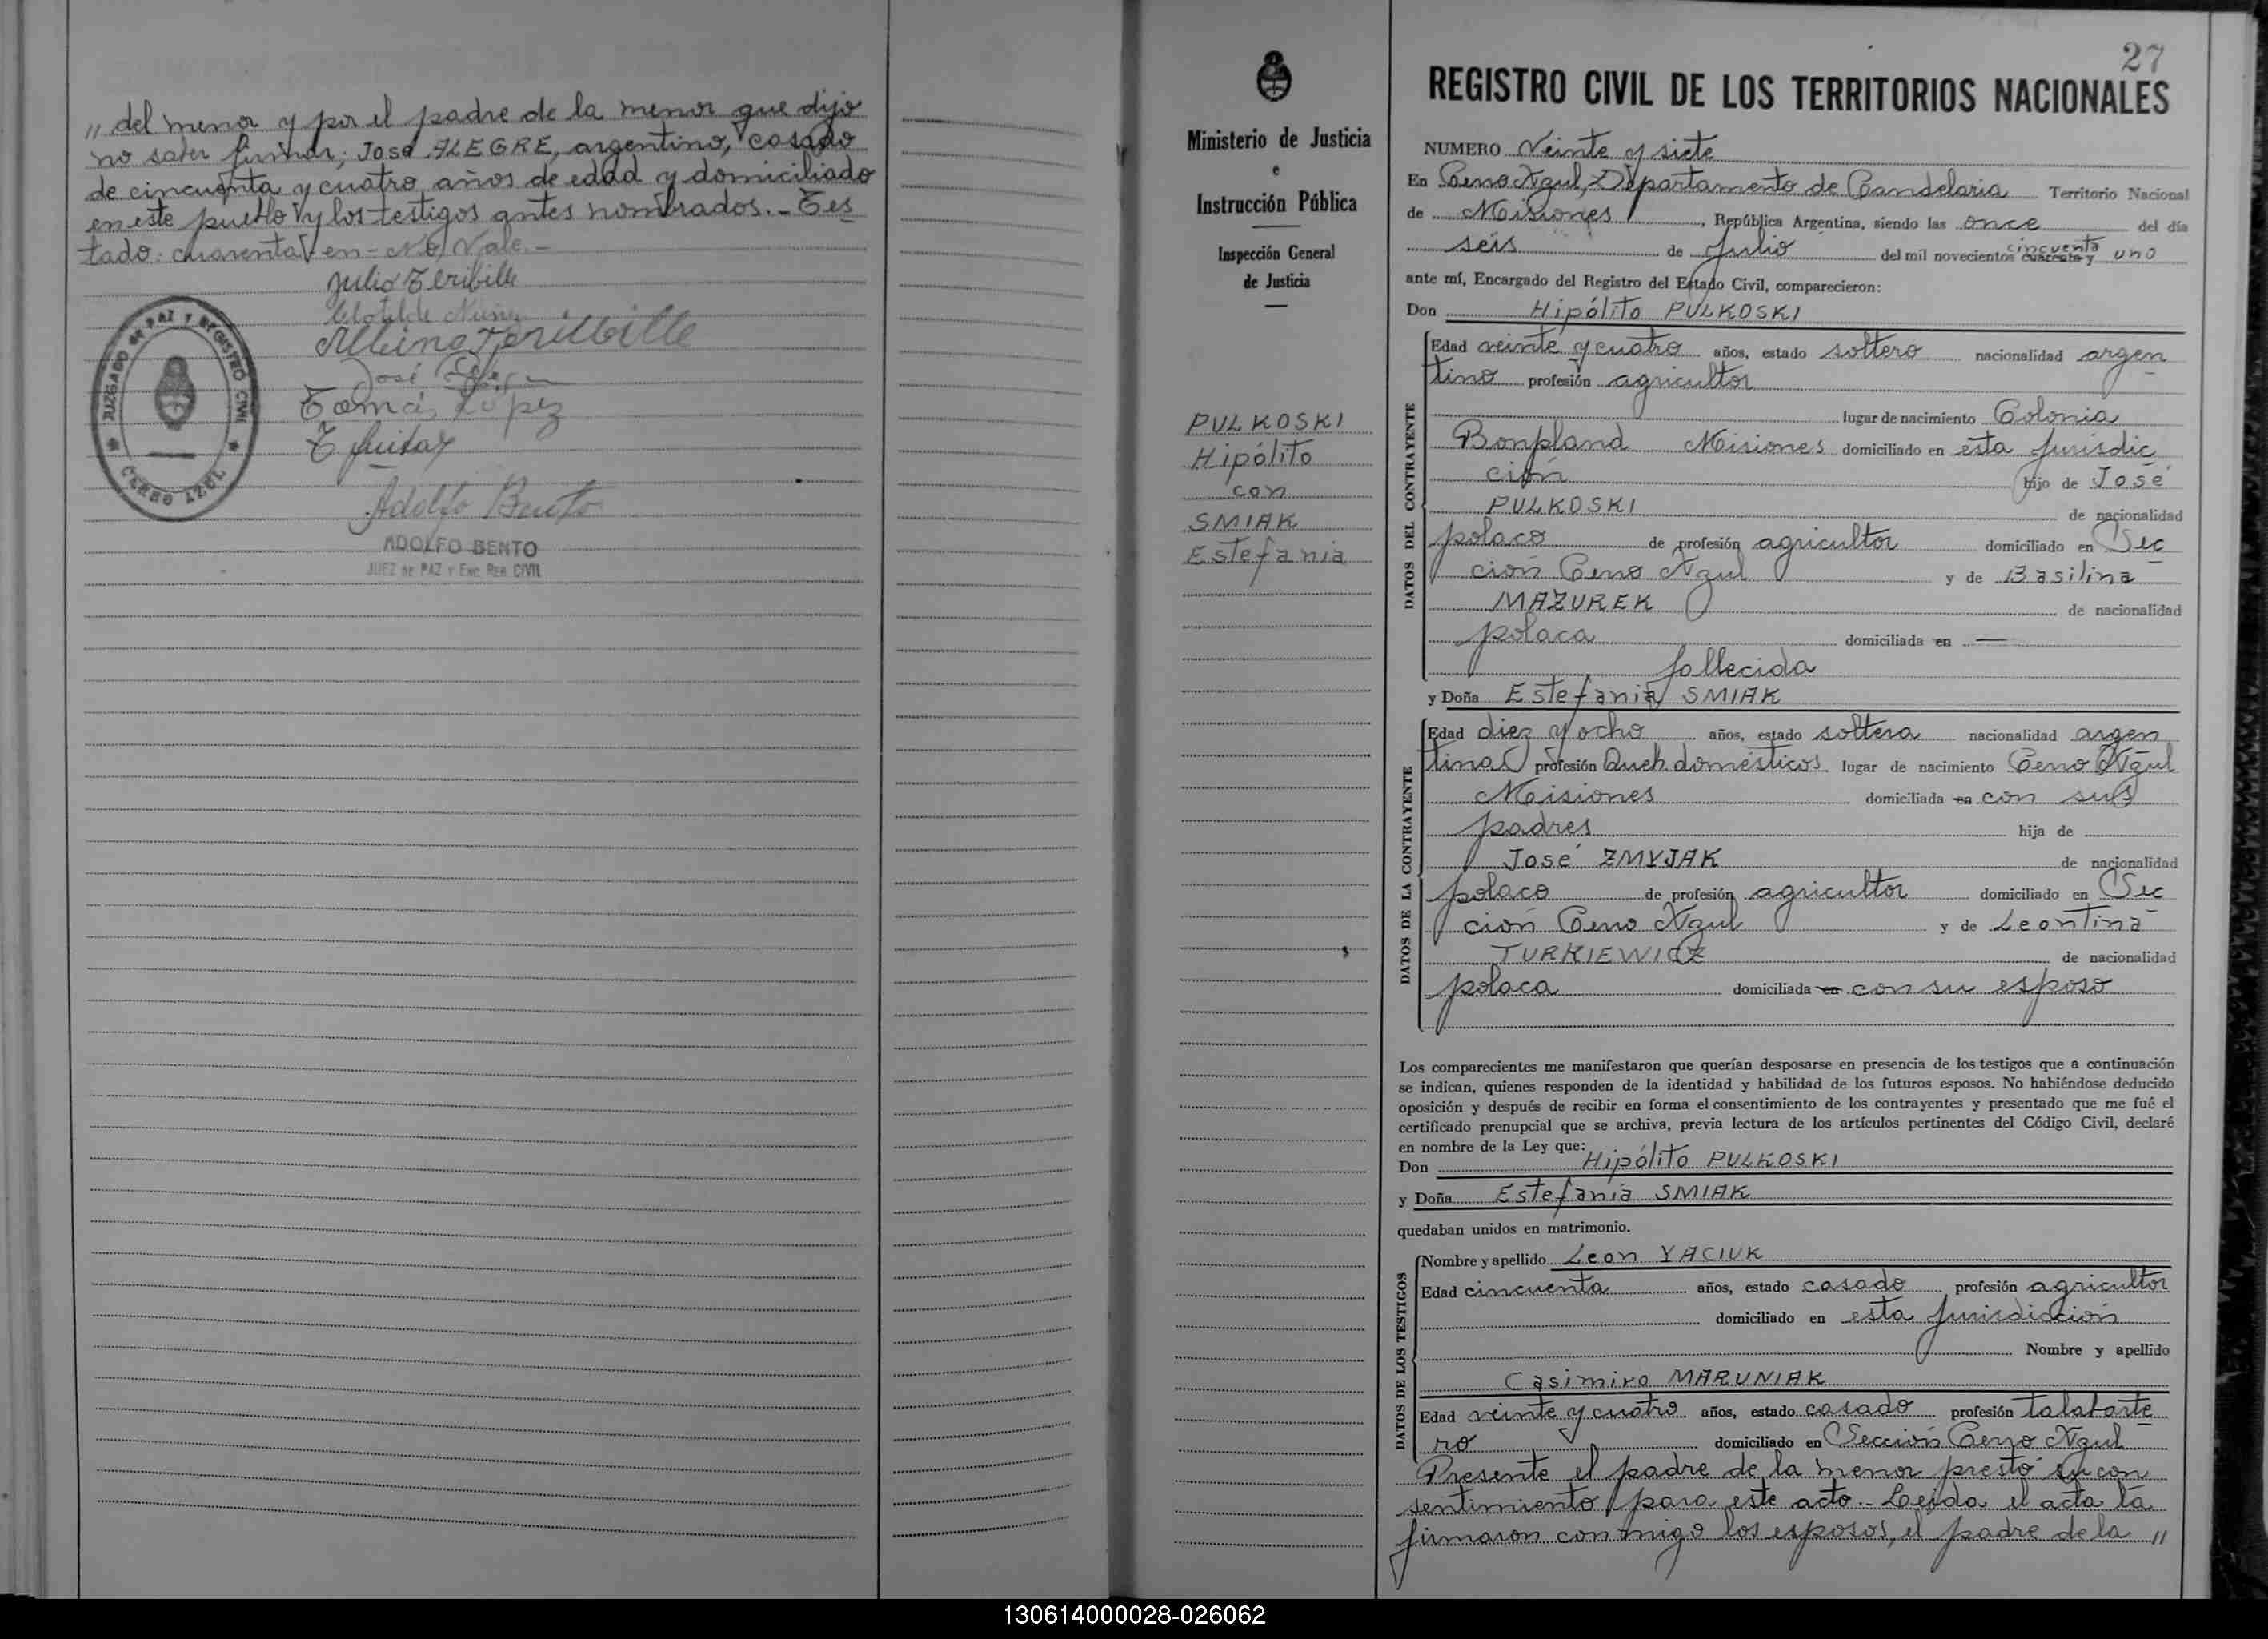 " del menor y por el padre de la menor que dijo
no saber firmar; José ALEGRE, argentino, casado
de cincuenta y cuatro años de edad y domiciliado
en este pueblo y los testigos antes nombrados.- Tes
tado: cuarenta - en - No Vale.-
Julio Teribille
Clotilde Nuñez
Albino Teribille
José
Tomás López
JUZGADO DE PAZ Y REGISTRO CIVIL
CERRO AZUL
Adolfo Bento
ADOLFO BENTO
JUEZ DE PAZ Y ENC. REG. CIVIL
Ministerio de Justicia
e
Instrucción Pública
Inspección General
de Justicia
PULKOSKI
Hipólito
con
SMIAK
Estefania
27
REGISTRO CIVIL DE LOS TERRITORIOS NACIONALES
NUMERO Veinte y siete
En Cerro Azul, Departamento de Candelaria Territorio Nacional
de Misiones, República Argentina, siendo las once del día
seis de Julio del mil novecientos cuarenta y cincuenta uno
ante mí, Encargado del Registro del Estado Civil, comparecieron:
Don Hipólito PULKOSKI
DATOS DEL CONTRAYENTE
Edad veinte y cuatro años, estado soltero nacionalidad argen
tino profesión agricultor
lugar de nacimiento Colonia
Bonpland Misiones domiciliado en esta jurisdic
ción hijo de José
PULKOSKI de nacionalidad
polaco de profesión agricultor domiciliado en Sec
ción Cerro Azul y de Basilina
MAZUREK de nacionalidad
polaca domiciliada en —
fallecida
y Doña Estefania SMIAK
DATOS DE LA CONTRAYENTE
Edad diez y ocho años, estado soltera nacionalidad argen
tina profesión Queh. domésticos lugar de nacimiento Cerro Azul
Misiones domiciliada en con sus
padres hija de
José ZMYJAK de nacionalidad
polaco de profesión agricultor domiciliado en Sec
ción Cerro Azul y de Leontina
TURKIEWICZ de nacionalidad
polaca domiciliada en con su esposo
Los comparecientes me manifestaron que querían desposarse en presencia de los testigos que a continuación
se indican, quienes responden de la identidad y habilidad de los futuros esposos. No habiéndose deducido
oposición y después de recibir en forma el consentimiento de los contrayentes y presentado que me fué el
certificado prenupcial que se archiva, previa lectura de los artículos pertinentes del Código Civil, declaré
en nombre de la Ley que:
Don Hipólito PULKOSKI
y Doña Estefania SMIAK
quedaban unidos en matrimonio.
DATOS DE LOS TESTIGOS
Nombre y apellido Leon YACIUK
Edad cincuenta años, estado casado profesión agricultor
domiciliado en esta jurisdicción
Nombre y apellido
Casimiro MARUNIAK
Edad veinte y cuatro años, estado casado profesión talabarte
ro domiciliado en Sección Cerro Azul
Presente el padre de la menor prestó su con
sentimiento para este acto.- Leída el acta la
firmaron conmigo los esposos, el padre de la "
130614000028-026062